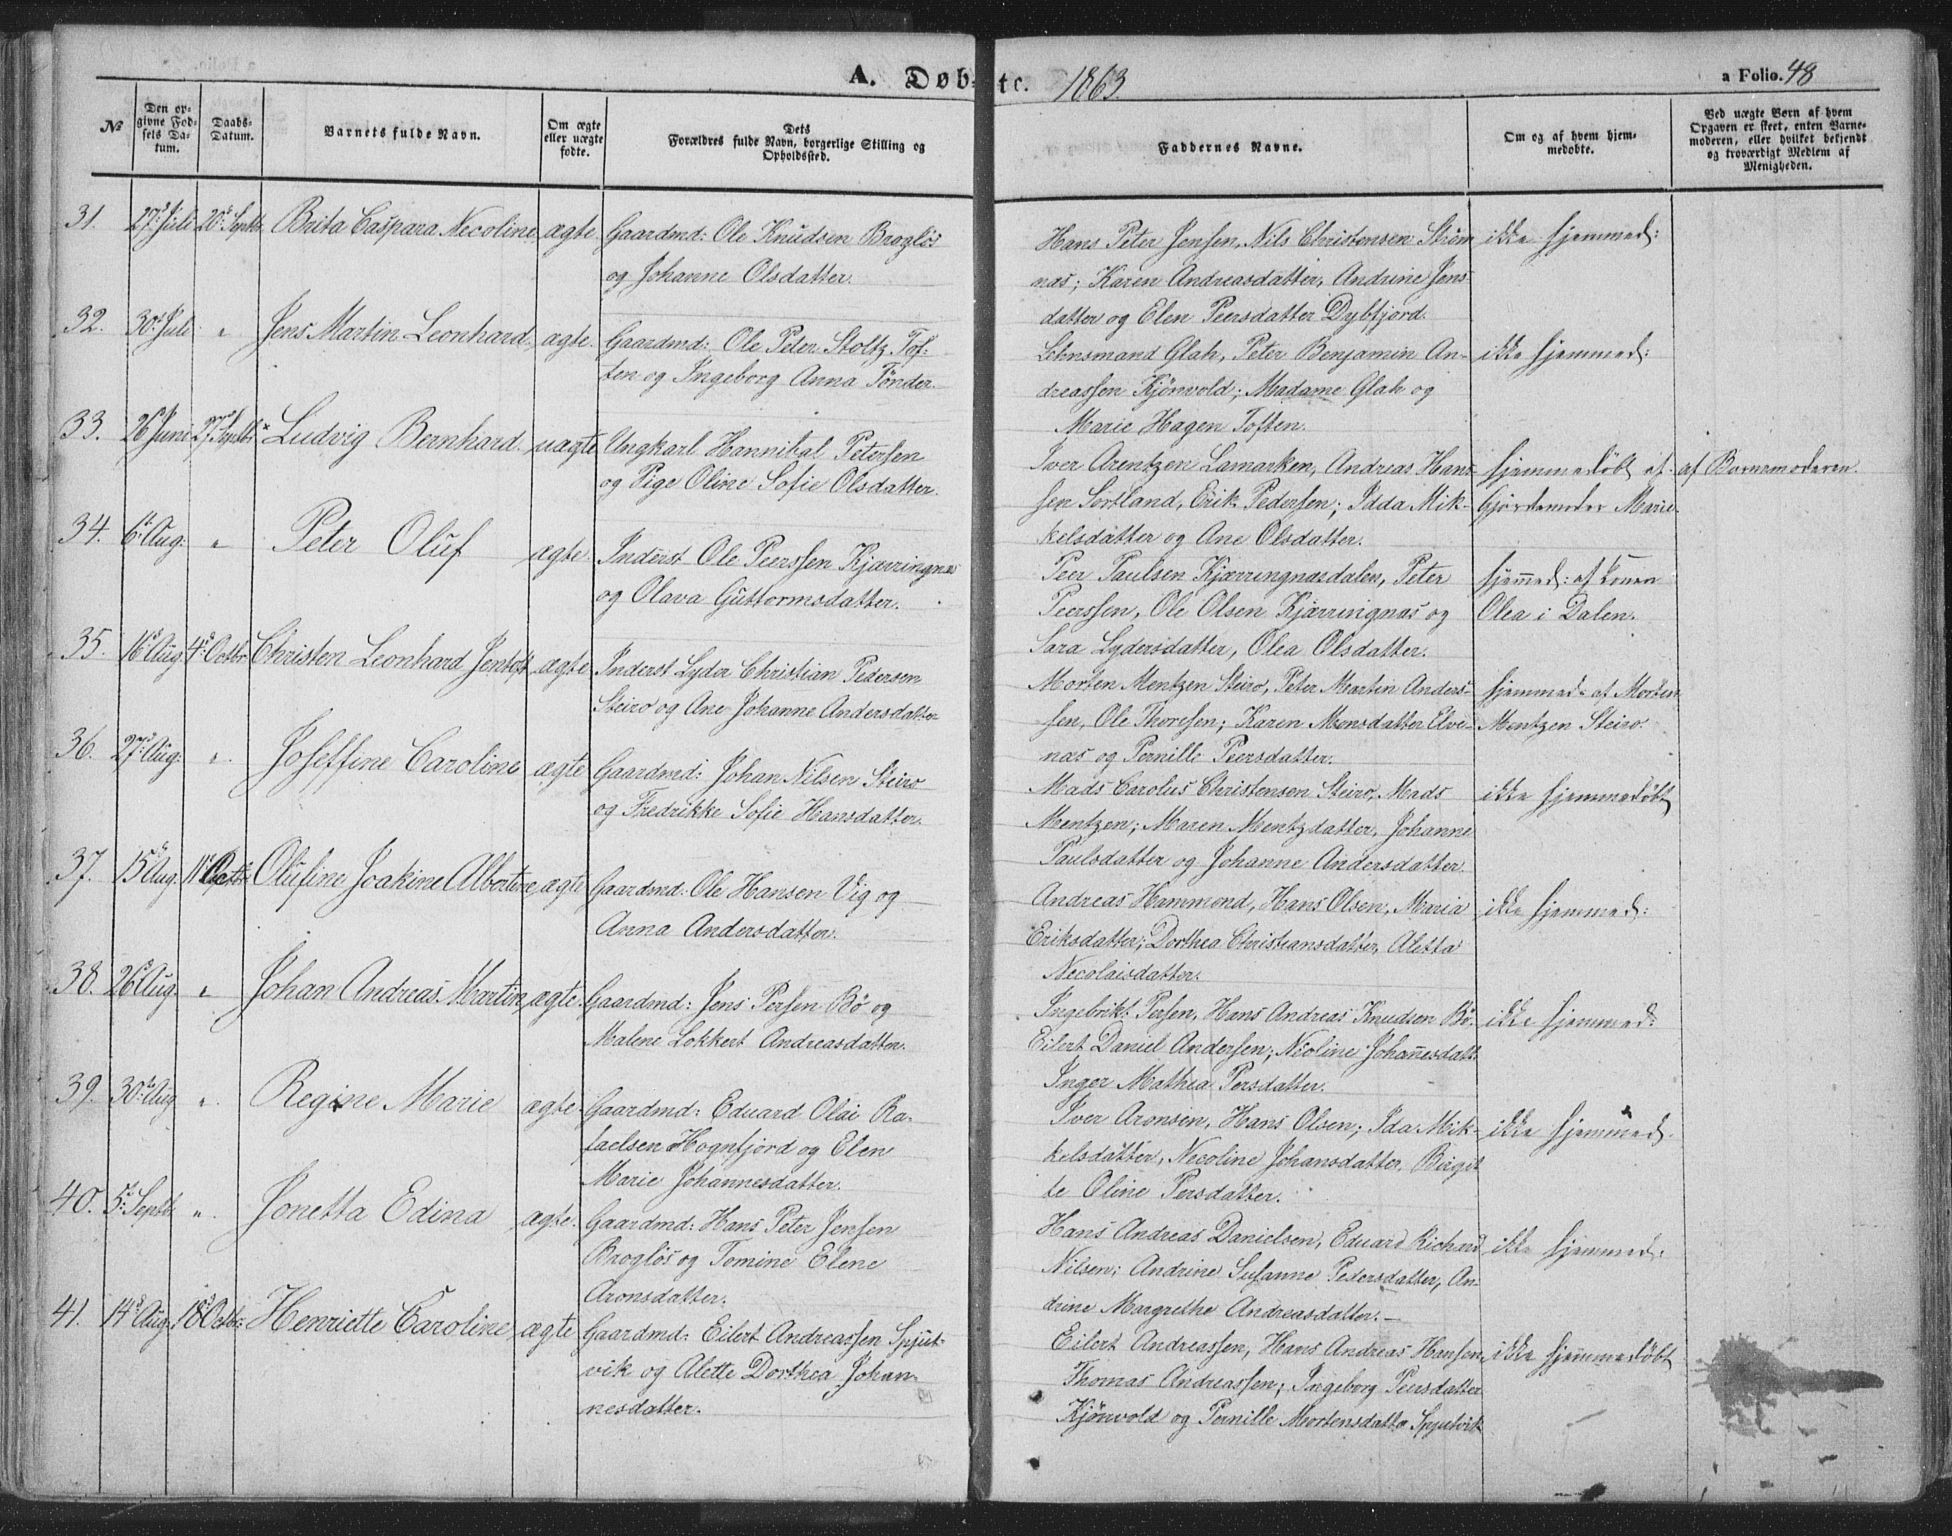 A. Døbte. 1863.
a Folio. 48
No
Den opgivne Fødsels Datum.
Daabs-Datum.
Barnets fulde Navn.
Om ægte eller uægte fødte.
Dets Forældres fulde Navn, borgerlige Stilling og Opholdssted.
Faddernes Navne.
Om og af hvem hjemmedøbte.
Ved uægte Børn af hvem Opgaven er skeet, enten Barnemoderen, eller hvilket bekjendt og troværdigt Medlem af Menigheden.
31. 27de Juli 20de Septbr. Brita Caspara Necoline ægte Gaardmd: Ole Knudsen Brogløs
og Johanne Olsdatter.
Hans Peter Jensen, Nils Christensen Strøm
næs; Karen Andreasdatter, Andrine Jens
datter og Elen Peersdatter Dybfjord.
ikke hjemmed:
32. 30te Juli " Jens Martin Leonhard, ægte. Gaardmd: Ole Peter Stoltz Tof-
ten og Ingeborg Anna Tönder
Lehnsmand Glah, Peter Benjamin An-
dreassen Kjönvold; Madame Glah og
Marie Hagen Toften.
ikke hjemmed:
33. 26 Juni 27de Septbr Ludvig Bernhard. uægte Ungkarl Hannibal Petersen
og Pige Oline Sofie Olsdatter.
Iver Arentzen Lamarken, Andreas Han-
sen Sortland, Erik Pedersen; Idda Mik-
kelsdatter og Ane Olsdatter.
hjemmedöbt af
Gjordemoder Marie.
af Barnemoderen.
34. 6te Aug: " Peter Oluf ægte. Inderst Ole Peerssen Kjærringnæs
og Olava Guttormsdatter.
Peer Paulsen Kjærringnæsdalen, Peter
Peerssen, Ole Olsen Kjærringnæs og
Sara Lydersdatter, Olea Olsdatter.
hjemmed: af Konen
Olea i Dalen.
35. 16de Aug. 4de Octbr Christen Leonhard Jentoft ægte Inderst Lyder Christian Pedersen
Steiro og Ane Johanne Andersdatter
Morten Mentzen Steiro, Peter Martin Anders-
sen, Ole Thoresen; Karen Monsdatter Elve-
næs og Pernille Peersdatter.
hjemmed: af Morten
Mentzen Steiro.
36. 27de Aug. " Joseffine Caroline ægte Gaardmd: Johan Nilsen Steiro
og Fredrikke Sofie Hansdatter.
Mads Carolus Christensen Steiro, Mads
Mentzen; Maren Mentzdatter, Johanne
Paulsdatter og Johanne Andersdatter.
ikke hjemmedöbt
37. 15de Aug. 11te Octbr. Olufine Joakine Albertine, ægte Gaardmd: Ole Hansen Vig og
Anna Andersdatter.
Andreas Hammond, Hans Olsen, Maria
Eriksdatter; Dorthea Christiansdatter, Aletta
Necolaisdatter.
ikke hjemmed:
38. 26de Aug. " Johan Andreas Martin, ægte. Gaardmd: Jens Persen Bö og
Malene Lokkert Andreasdatter.
Ingebrikt Persen, Hans Andreas Knudsen Bö,
Eilert Daniel Andersen; Nicoline Johannesdatt.
Inger Mathea Persdatter.
ikke hjemmed:
39. 30te Aug " Regine Marie ægte. Gaardmd: Eduard Olai Ra-
faelsen Hognfjord og Elen
Marie Johannesdatter.
Iver Aronsen, Hans Olsen; Ida Mik-
kelsdatter, Necoline Johansdatter, Birgit
te Oline Persdatter.
ikke hjemmed.
40. 5te Septbr. " Jonetta Edina ægte. Gaardmd: Hans Peter Jensen
Brogløs og Tomine Elene
Aronsdatter.
Hans Andreas Danielsen, Eduard Richard
Nilsen; Andrine Susanne Pedersdatter, An-
drine Margrethe Andreasdatter.
ikke hjemmed:
41. 14de Aug. 18de Octbr. Henriette Caroline, ægte Gaardmd: Eilert Andreassen Spjut-
vik og Alette Dorthea Johan-
nesdatter.
Eilert Andreassen, Hans Andreas Hansen,
Thomas Andreassen; Ingeborg Peersdatter
Kjönvold og Pernille Mortensdatter Spjutvik
ikke hjemmedöbt